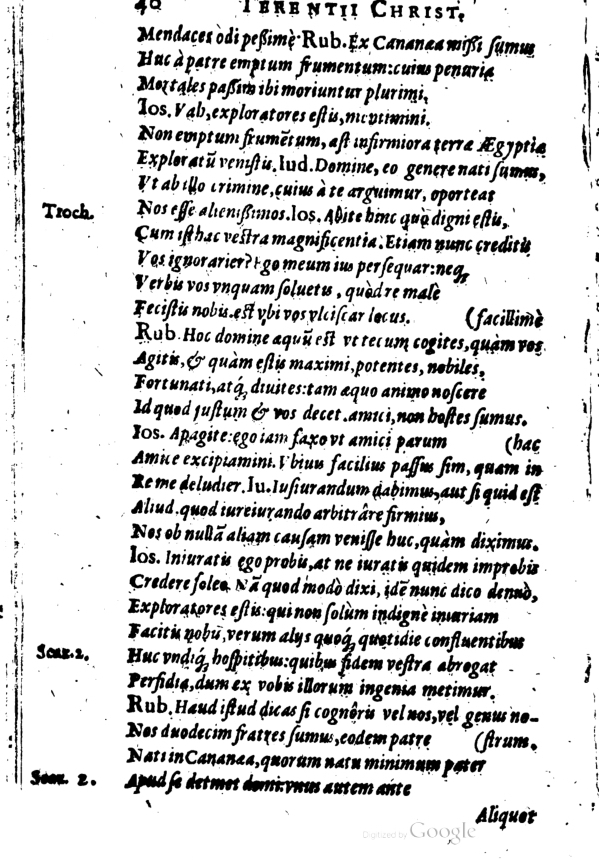 40 TERENTII CHRIST.
Mendaces òdi peßimè Rub. Ex Cananæa mißi sumus
Huc à patre emptum frumentum: cuius penuria
Mortales passim ibi moriuntur plurimi.
Ios. Vah, exploratores estis, mentimini.
Non emptum frumētum, ast infirmiora terræ Ægyptiæ
Exploratū venistis. Iud. Domine, eo genere nati sumus,
Vt ab illo crimine, cuius à te arguimur, oporteat
Troch. Nos esse alienißimos. Ios. Abite hinc quò digni estis,
Cum isthac vestra magnificentia. Etiam nunc creditis
Vos ignorarier? ego meum ius persequar: neq;
Verbis vos vnquam soluetis, quòd re malè
Fecistis nobis. est vbi vos vlciscar locus. (facillimè
Rub. Hoc domine æquū est vt tecum cogites, quàm vos
Agitis, & quàm estis maximi, potentes, nobiles,
Fortunati, atq; diuites: tam æquo animo noscere
Id quod justum & vos decet. amici, non hostes sumus.
Ios. Apagite: ego iam faxo vt amici parum (hac
Amice excipiamini. Vbiuis facilius passus sim, quam in
Re me deludier. Iu. Iusiurandum dabimus, aut si quid est
Aliud. quod iureiurando arbitrâre firmius,
Nos ob nullã aliam causam venisse huc, quàm diximus.
Ios. Iniuratis ego probis, at ne iuratis quidem improbis
Credere soleo. Nã quod modò dixi, idē nunc dico denuò,
Exploratores estis: qui non solum indignè iniuriam
Facitis nobis, verum alijs quoq; quotidie confluentibus
Scaz. 2. Huc vndiq; hospitibus: quibus fidem vestra abrogat
Perfidia, dum ex vobis illorum ingenia metimur.
Rub. Haud istud dicas si cognôris vel nos, vel genus no-
Nos duodecim fratres sumus, eodem patre (strum.
Nati in Cananæa, quorum natu minimum pater
Scaz. 2. Apud se detinet domi: vnus autem ante
Aliquot
Digitized by Google